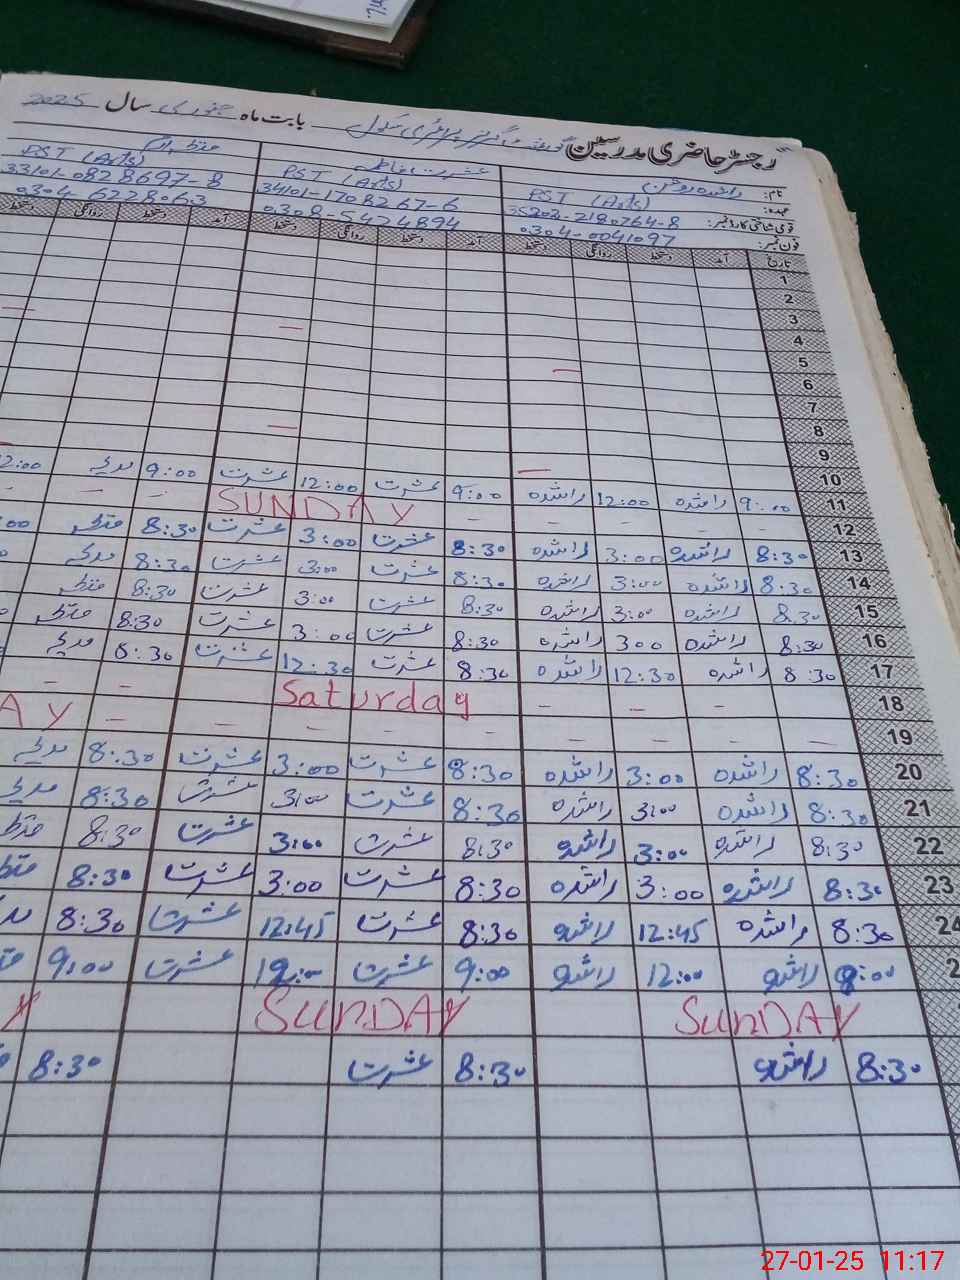 رجسٹر حاضری مدرسین گورنمنٹ گرلز پرائمری سکول بابت ماہ جنوری سال 2025
نام: راشدہ روشن عشرت فاطمہ
عہدہ: PST (Arts) PST (Arts) PST (Arts)
قومی شناختی کارڈ نمبر: 35202-2180764-8 34101-1708267-6 33101-0828697-8
فون نمبر: 0304-0041097 0308-5424894 0304-6228063
تاریخ آمد دستخط روانگی دستخط آمد دستخط روانگی دستخط آمد دستخط روانگی دستخط
1
2
3
4
5
6
7
8
9
10
11 9:00 راشدہ 12:00 راشدہ 9:00 عشرت 12:00 عشرت 9:00 2:00
12 SUNDAY
13 8:30 راشدہ 3:00 راشدہ 8:30 عشرت 3:00 عشرت 8:30 :00
14 8:30 راشدہ 3:00 راشدہ 8:30 عشرت 3:00 عشرت 8:30
15 8:30 راشدہ 3:00 راشدہ 8:30 عشرت 3:00 عشرت 8:30
16 8:30 راشدہ 3:00 راشدہ 8:30 عشرت 3:00 عشرت 8:30
17 8:30 راشدہ 12:30 راشدہ 8:30 عشرت 12:30 عشرت 8:30
18 Saturday
19 AY
20 8:30 راشدہ 3:00 راشدہ 8:30 عشرت 3:00 عشرت 8:30
21 8:30 راشدہ 3:00 راشدہ 8:30 عشرت 3:00 عشرت 8:30
22 8:30 راشدہ 3:00 راشدہ 8:30 عشرت 3:00 عشرت 8:30
23 8:30 راشدہ 3:00 راشدہ 8:30 عشرت 3:00 عشرت 8:30
24 8:30 راشدہ 12:45 راشدہ 8:30 عشرت 12:45 عشرت 8:30
2 9:00 راشدہ 12:00 راشدہ 9:00 عشرت 12:00 عشرت 9:00
SUNDAY SUNDAY Y
8:30 راشدہ 8:30 عشرت 8:30
27-01-25 11:17